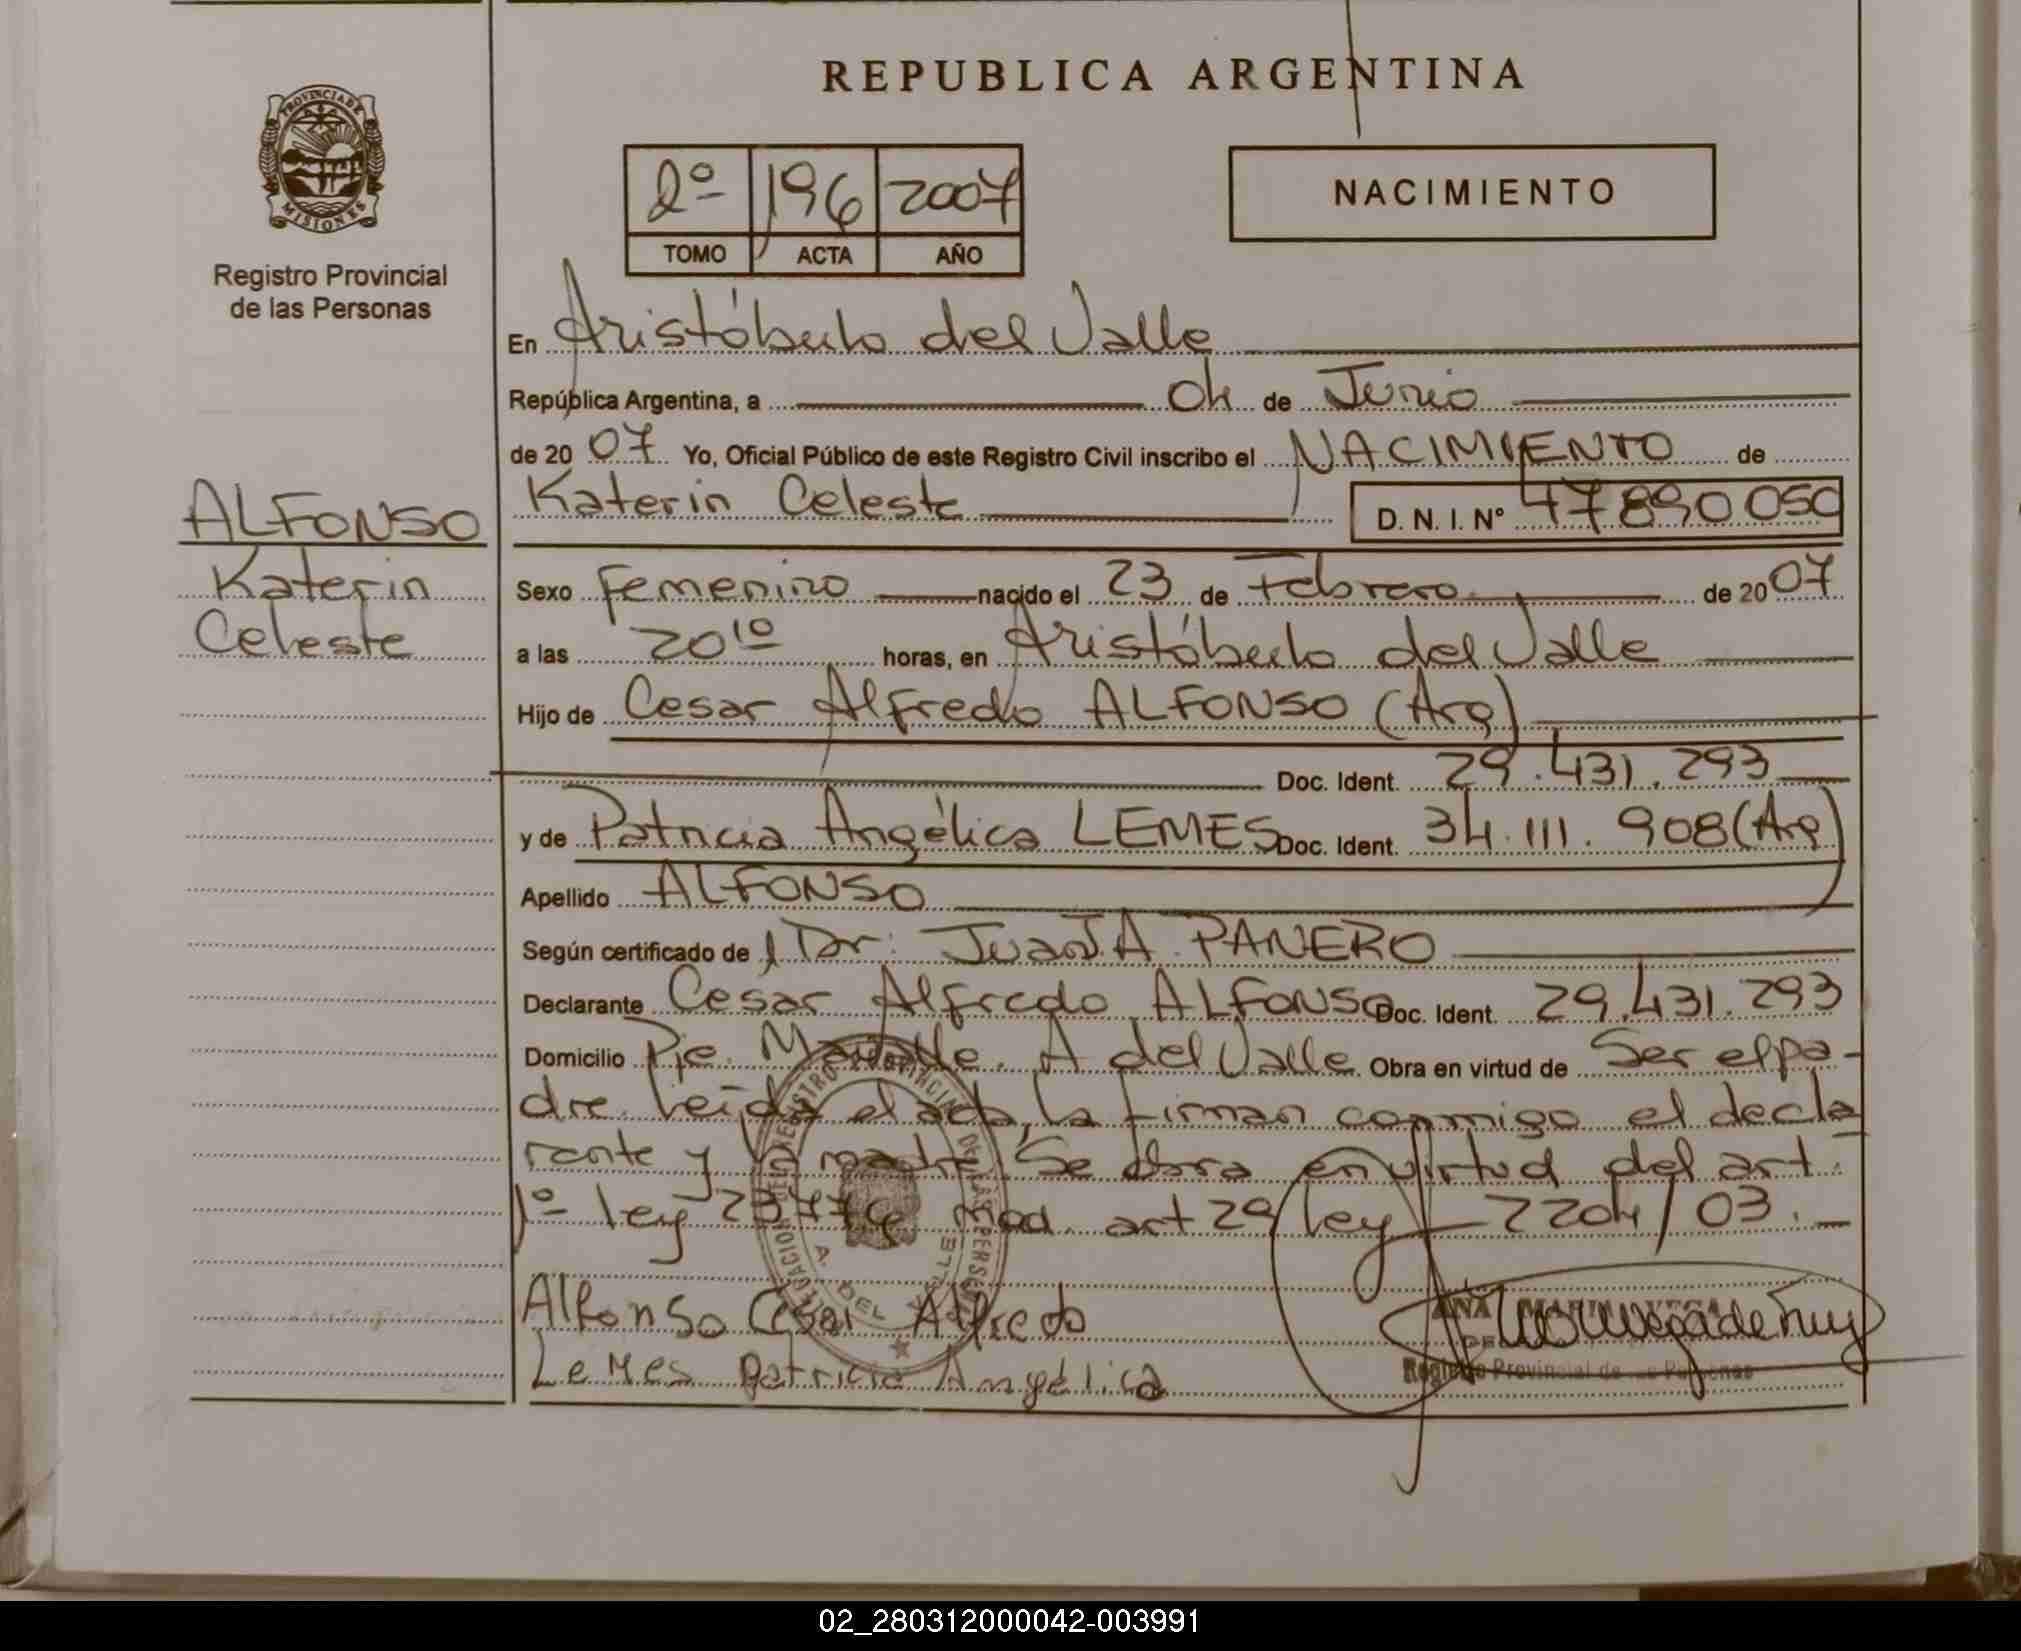 REPUBLICA ARGENTINA
PROVINCIA DE
MISIONES
Registro Provincial
de las Personas
2º 196 2007
TOMO ACTA AÑO
NACIMIENTO
En Aristóbulo del Valle
República Argentina, a 04 de Junio
de 20 07 Yo, Oficial Público de este Registro Civil inscribo el NACIMIENTO de
Katerin Celeste D. N. I. Nº 47890050
ALFONSO
Katerin
Celeste
Sexo Femenino nacido el 23 de Febrero de 20 07
a las 20 10 horas, en Aristóbulo del Valle
Hijo de Cesar Alfredo ALFONSO (Arg)
Doc. Ident. 29.431.293
y de Patricia Angélica LEMES Doc. Ident. 34.111.908 (Arg)
Apellido ALFONSO
Según certificado de Dr: Juan J. A. PANERO
Declarante Cesar Alfredo ALFONSO Doc. Ident. 29.431.293
Domicilio Pje. A del Valle. Obra en virtud de Ser el pa-
dre. Leída el acta, la firman conmigo el decla
rante y la madre. Se obra en virtud del art.
1º ley 23774 mod. art 29 ley 2204/03.
Alfonso Cesar Alfredo
Lemes Patricia Angélica
ANA
Registro Provincial de las Personas
A. DEL VALLE
02_280312000042-003991